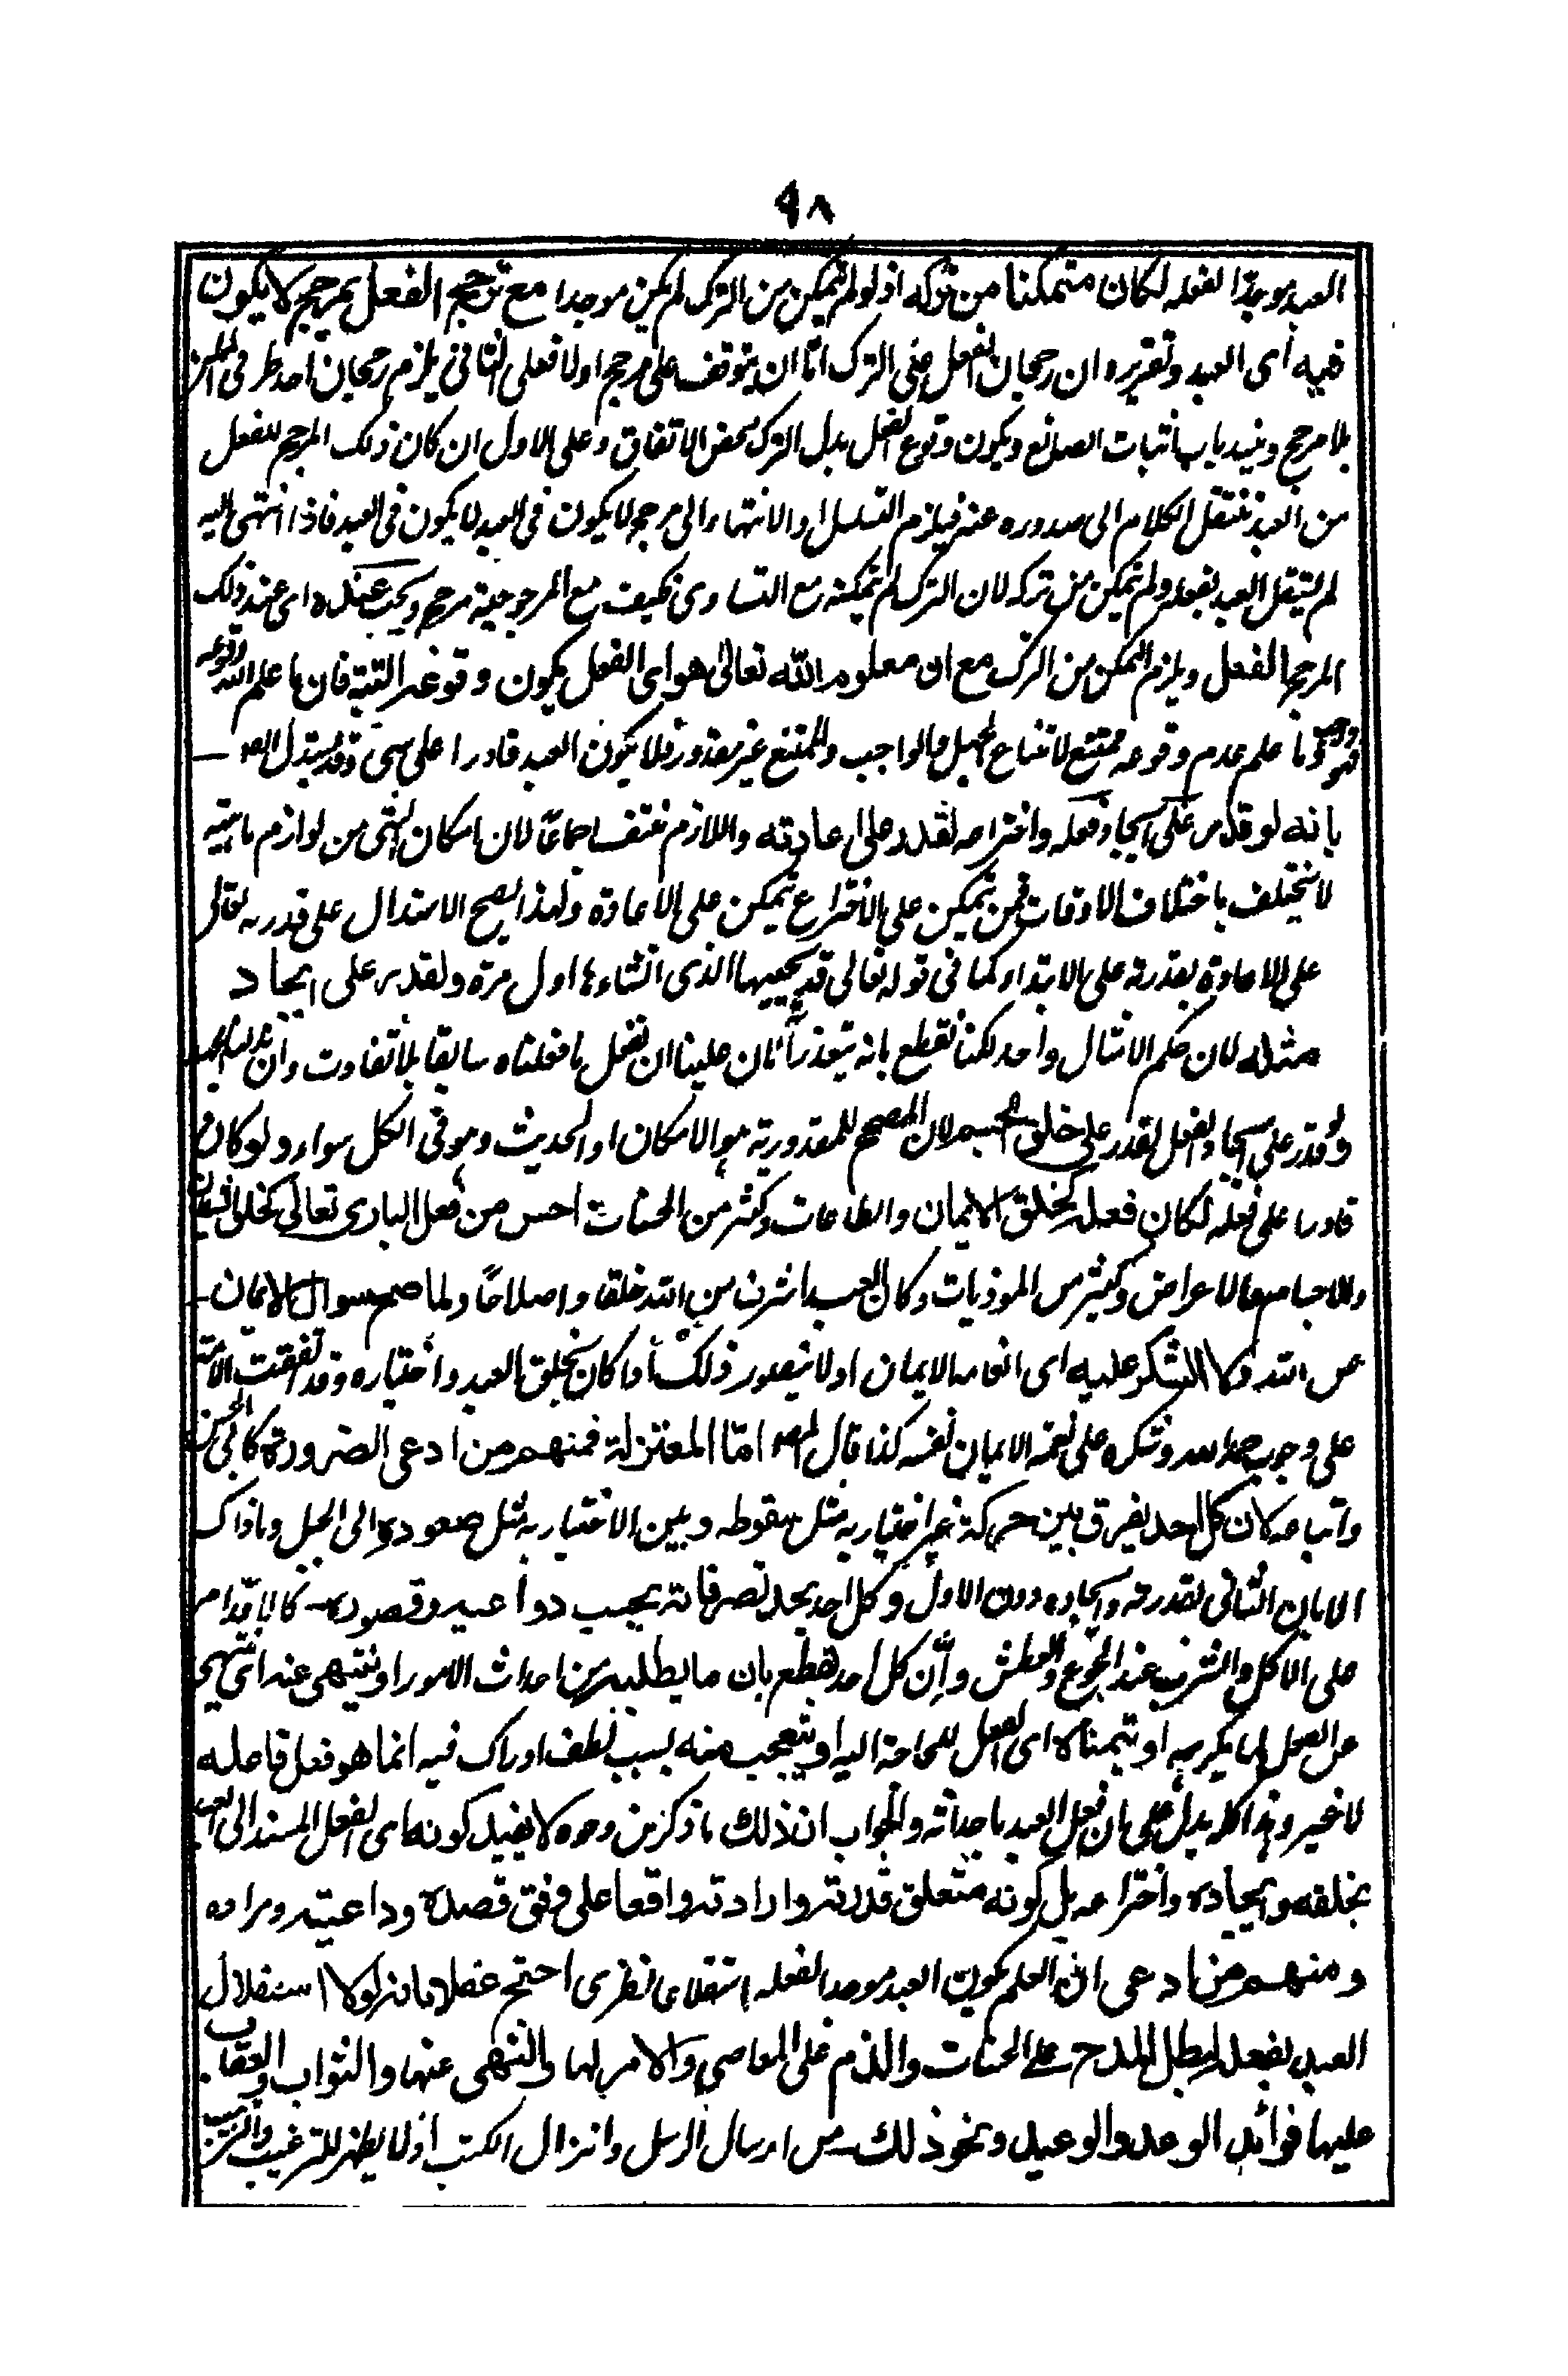 ٩٨
العبد موجدا لفعله لكان متمكنا من تركه اذ لو لم يتمكن من الترك لم يكن موجدا مع ترجح الفعل بمرجح لا يكون
فيه أى العبد وتقريره ان رجحان الفعل على الترك امّا ان يتوقف على مرجح اولا فعلى الثانى يلزم رجحان احد طرفى الممكن
بلا مرجح وينسد باب اثبات الصانع ويكون وقوع الفعل بدل الترك بمحض الاتفاق وعلى الاول ان كان ذلك المرجح للفعل
من العبد ننتقل الكلام الى صدوره عنه فيلزم التسلسل او الانتهاء الى مرجح لا يكون فى العبد لا يكون فى العبد فاذا انتهى اليه
لم يستقل العبد بفعله ولم يتمكن من تركه لان الترك لم يمكنه مع التساوى فكيف مع المرجوحية مرجح ويجب عنده اى عند ذلك
المرجح الفعل ويلزم التمكن من الترك مع ان معلوم الله تعالى هو اى الفعل يكون وقوعه البتة فان ما علم الله وقوعه
فهو وجب وما علم عدم وقوعه ممتنع لامتناع الجهل والواجب والممتنع غير مقدور فلا يكون العبد قادرا على شئ وقد يستدل
بانه لو قدر على ايجاد فعله واختراعه لقدر على اعادته واللازم منتف اجماعًا لان امكان الشئ من لوازم ماهيته
لا يختلف باختلاف الاوقات فمن تمكن على الاختراع تمكن على الاعادة ولهذا يصح الاستدلال على قدرته تعالى
على الاعادة بقدرته على الابتداء كما فى قوله تعالى قل يحييها الذى انشاءها اول مرة ولقدر على ايجاد
مثله لان حكم الامثال واحد لكنا نقطع بانه يتعذر علينا ان نفعل ما فعلناه سابقا بلا تفاوت وان بذلنا الجهد
ولو قدر على ايجاد الفعل لقدر على خلق الجسم لان المصحح للمقدورية هو الامكان او الحدوث وهو فى الكل سواء ولو كان
قادرا على فعله لكان فعله كخلق الايمان والطاعات وكثير من الحسنات احسن من فعل البارى تعالى كخلق الشيطان
والاجسام والاعراض وكثير من الموذيات وكان العبد اشرف من الله خلقا واصلاحًا ولما صح سوال الايمان
من الله ولا الشكر عليه اى انعام الايمان اولا يتصور ذلك اذا كان بخلق العبد واختياره وقد اتفقت الامة
على وجوب حمد الله وشكره على نعمة الايمان نفسه كذا قال امّا المعتزلة فمنهم من ادعى الضرورة كابى الحسين
واتباعه لان كل احد يفرق بين حركة غير اختيارية مثل سقوطه وبين الاختيارية مثل صعوده الى الجبل وما ذاك
الا بان الثانى بقدرته وايجاده دون الاول وكل احد يجد تصرفاته بحسب دواعيه وقصوده كالاقدام
على الاكل والشرب عند الجوع والعطش وانّ كل احد يقطع بان ما يطلبه من احداث الامور او ينتهى عنه
عن الفعل لما يكرهه او يتمناه اى الفعل للحاجة اليه او يتعجب منه بسبب لطف ادراك فيه انما هو فعل فاعله
لا غير وهذا كله يدل على بان فعل العبد باحداثه والجواب ان ذلك ما ذكر من وجوه لا يفيد كونه اى الفعل المسند الى العبد
بخلقه وايجاده واختراعه بل كونه متعلق قدرته وارادته واقعا على وفق قصده وداعيته ومراده
ومنهم من ادعى ان العلم بكون العبد موجدا لفعله استقلالى نظرى احتج عقلا بانه لولا استقلال
العبد بفعله لبطل المدح على الحسنات والذم على المعاصى والامر لها والنهى عنها والثواب والعقاب
عليها فوائد الوعد والوعيد ونحو ذلك من ارسال الرسل وانزال الكتب اذ لا يظهر للترغيب والترهيب